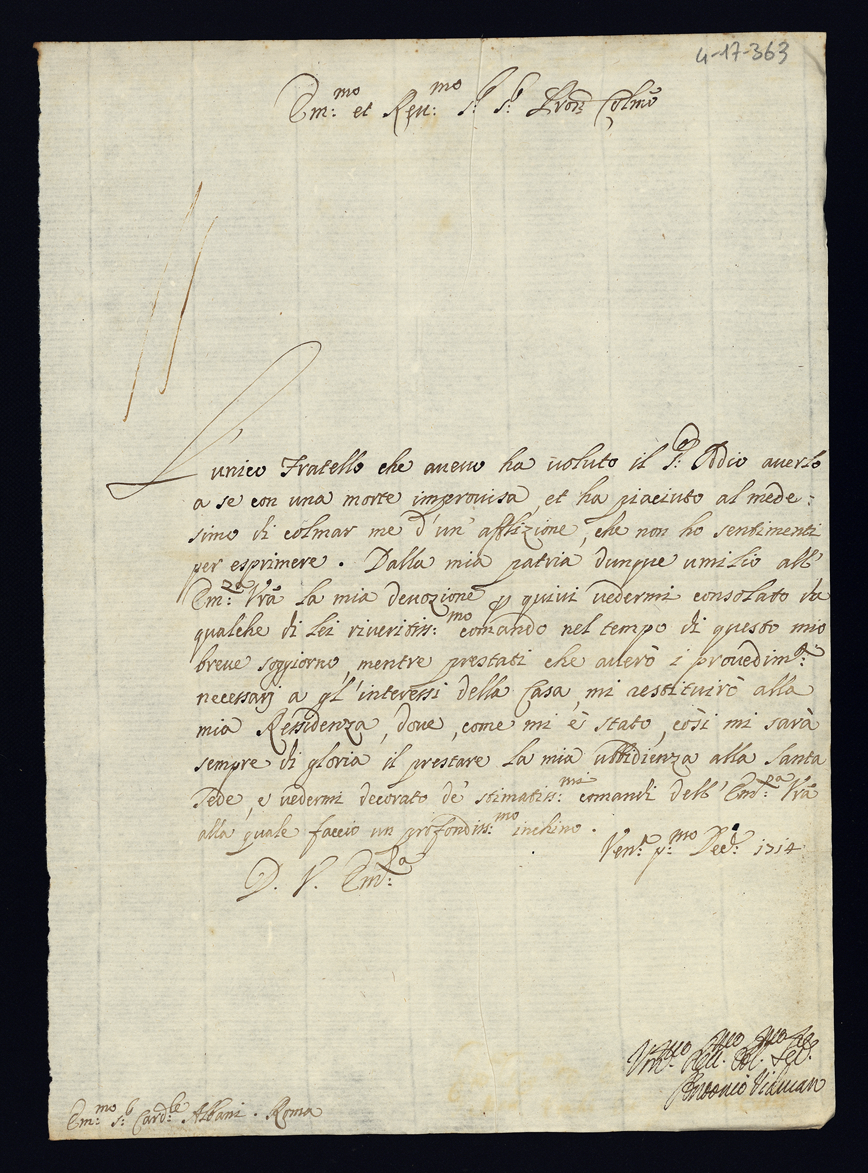 4-17-363
Em:mo et Reu:mo Sr. Sr. Pron Colmo
L'unico Fratello che aueuo ha uoluto il S:r Iddio auerlo
a se con una morte improuisa, et ha piaciuto al mede:
simo di colmar me d'un' aflizione, che non ho sentimenti
per esprimere. Dalla mia patria dunque umilio all'
Em:za Vra la mia deuozione p quiui uedermi consolato da
qualche di lei riueritiss:mo comando nel tempo di questo mio
breue soggiorno, mentre prestati che auerò i prouedim:ti
necessarj a gl'interessi della Casa, mi restituirò alla
mia Residenza, doue, come mi è stato, così mi sarà
sempre di gloria il prestare la mia ubbidienza alla Santa
Sede, e uedermi decorato de' stimatiss:mi comandi dell' Em:za Vra
alla quale faccio un profondiss:mo inchino.
Ven:a p:mo Dec: 1714
D. V. Em:za
Vm:mo
Antonio Vidman
Em:mo S:r Card:le Albani. Roma